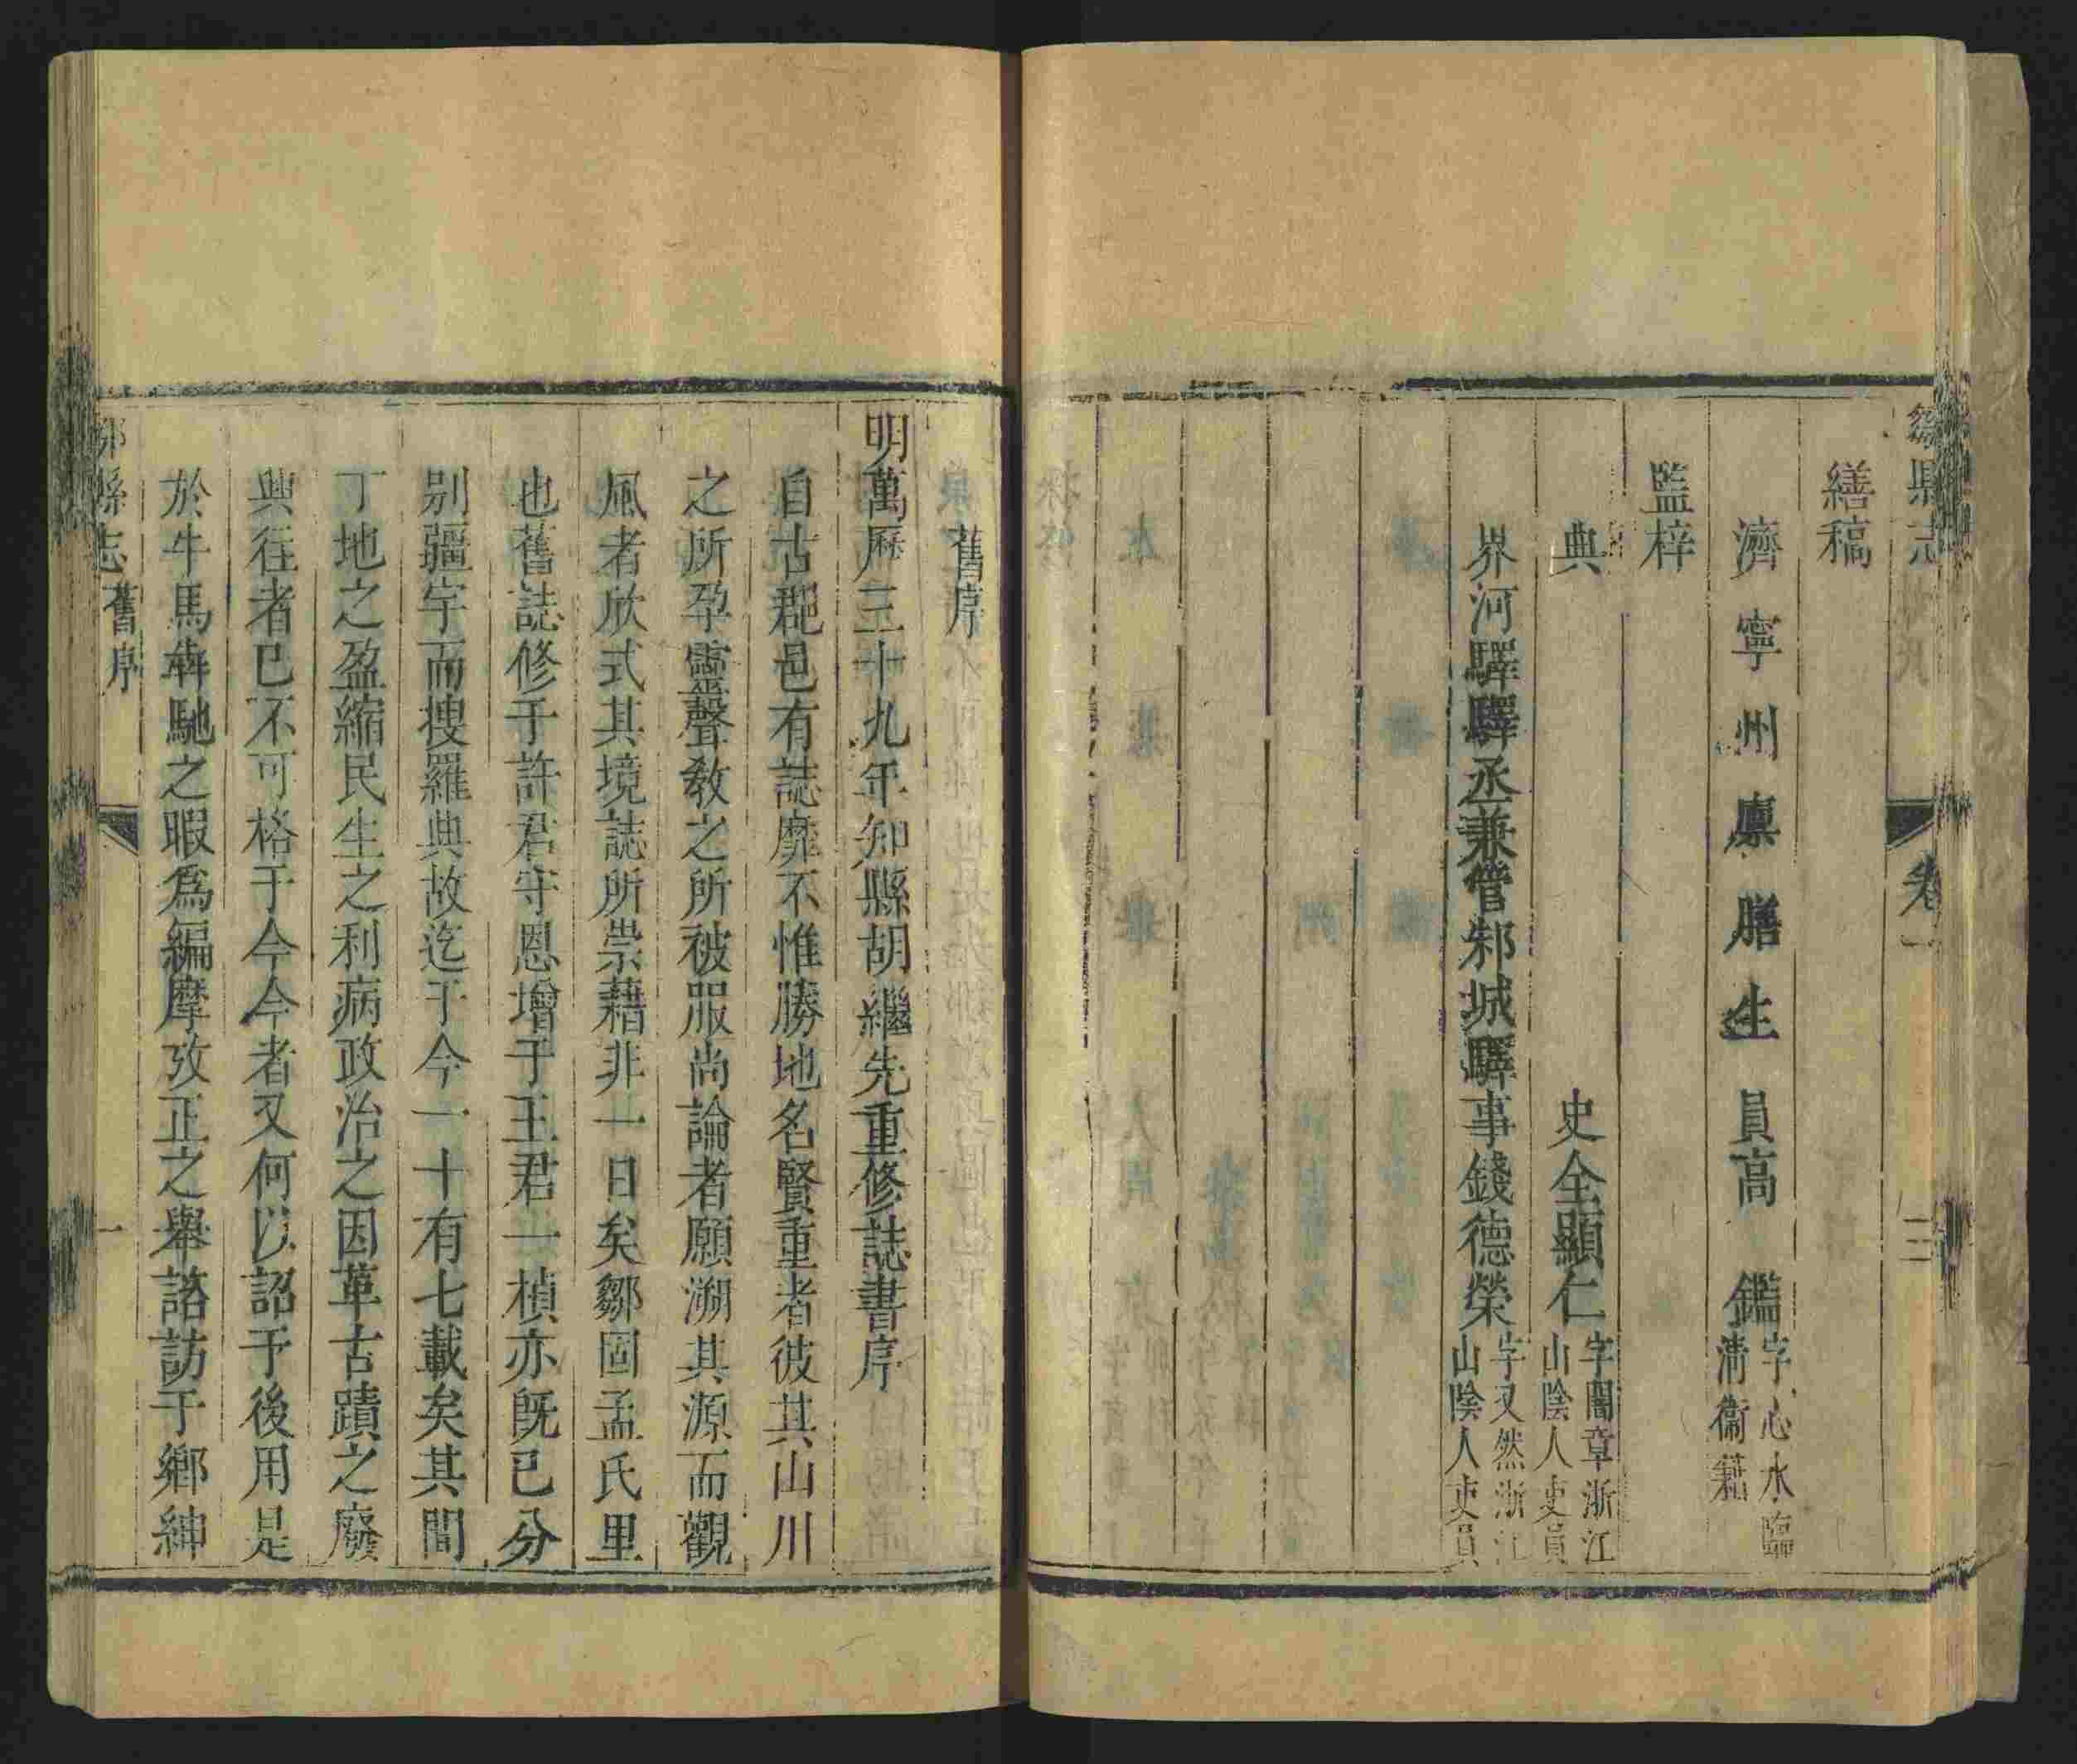 鄒縣志 卷一 三
繕稿
濟寧州廩膳生員高鑑字心水臨清衞籍
監梓
典史全顯仁字闇章浙江山陰人吏員
界河驛驛丞兼管邾城驛事錢德榮字又然浙江山陰人吏員
舊序
明萬曆三十九年知縣胡繼先重修誌書序
自古郡邑有誌靡不惟勝地名賢重者彼其山川
之所孕靈聲教之所被服尚論者願溯其源而觀
風者欣式其境誌所崇藉非一日矣鄒固孟氏里
也舊誌修于許君守恩增于王君一楨亦既已分
别疆宇而搜羅典故迄于今一十有七載矣其間
丁地之盈縮民生之利病政治之因革古蹟之廢
興往者已不可格于今今者又何以詔予後用是
於牛馬犇馳之暇爲編摩攷正之舉諮訪于鄉紳
鄒縣志 舊序 一